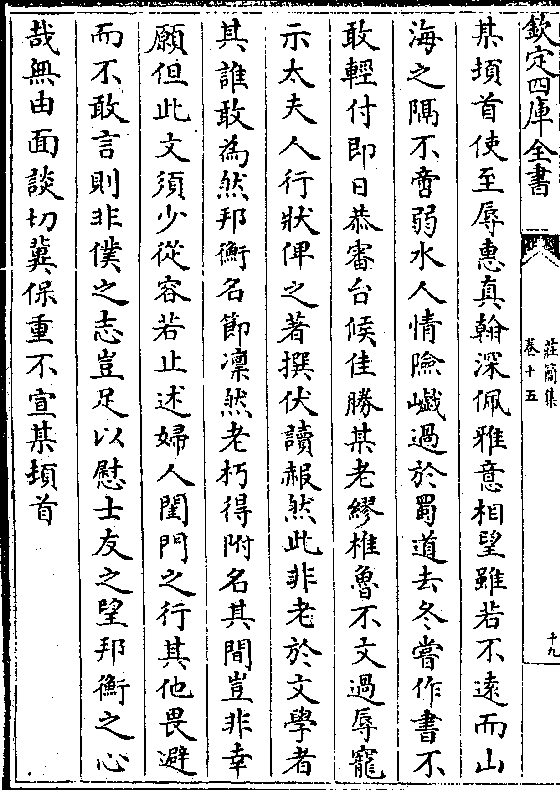 欽定四庫全書
莊簡集
卷十五
十九
某頓首使至辱惠真翰深佩雅意相望雖若不遠而山
海之隅不啻弱水人情險巇過於蜀道去冬嘗作書不
敢輕付即日恭審台候佳勝某老繆椎魯不文過辱寵
示太夫人行狀俾之著撰伏讀赧然此非老於文學者
其誰敢為然邦衡名節凛然老朽得附名其間豈非幸
願但此文須少從容若止述婦人閨門之行其他畏避
而不敢言則非僕之志豈足以慰士友之望邦衡之心
哉無由面談切冀保重不宣某頓首